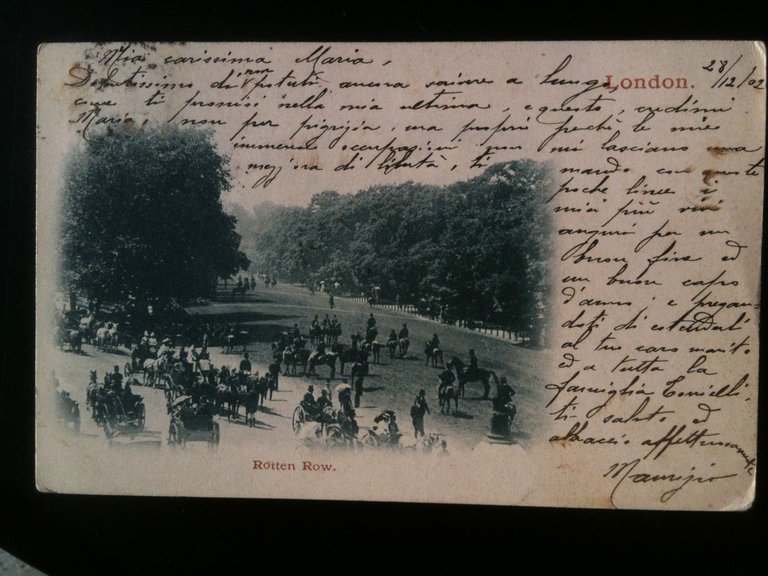 Mia carissima Maria,
London.
28/12/02
Dolentissimo di non potuti ancora scrivere a lungo
come ti promisi nella mia ultima, e questo, credimi
Maria, non per pigrizia, ma proprio perchè le mie
immense occupazioni non mi lasciano una
mezz'ora di libertà, ti
mando con queste
poche linee i
miei più vivi
auguri per un
buon fine ed
un buon capo
d'anno; e pregan-
doti di estenderli
al tuo caro marito
ed a tutta la
famiglia
ti saluto ed
abbraccio affettuosamente
Maurizio
Rotten Row.